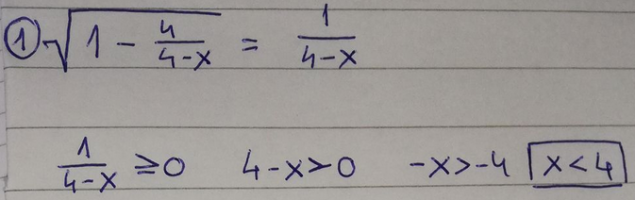 ① √(1 - 4/(4-x)) = 1/(4-x)
1/(4-x) ≥ 0 4-x > 0 -x > -4 x < 4